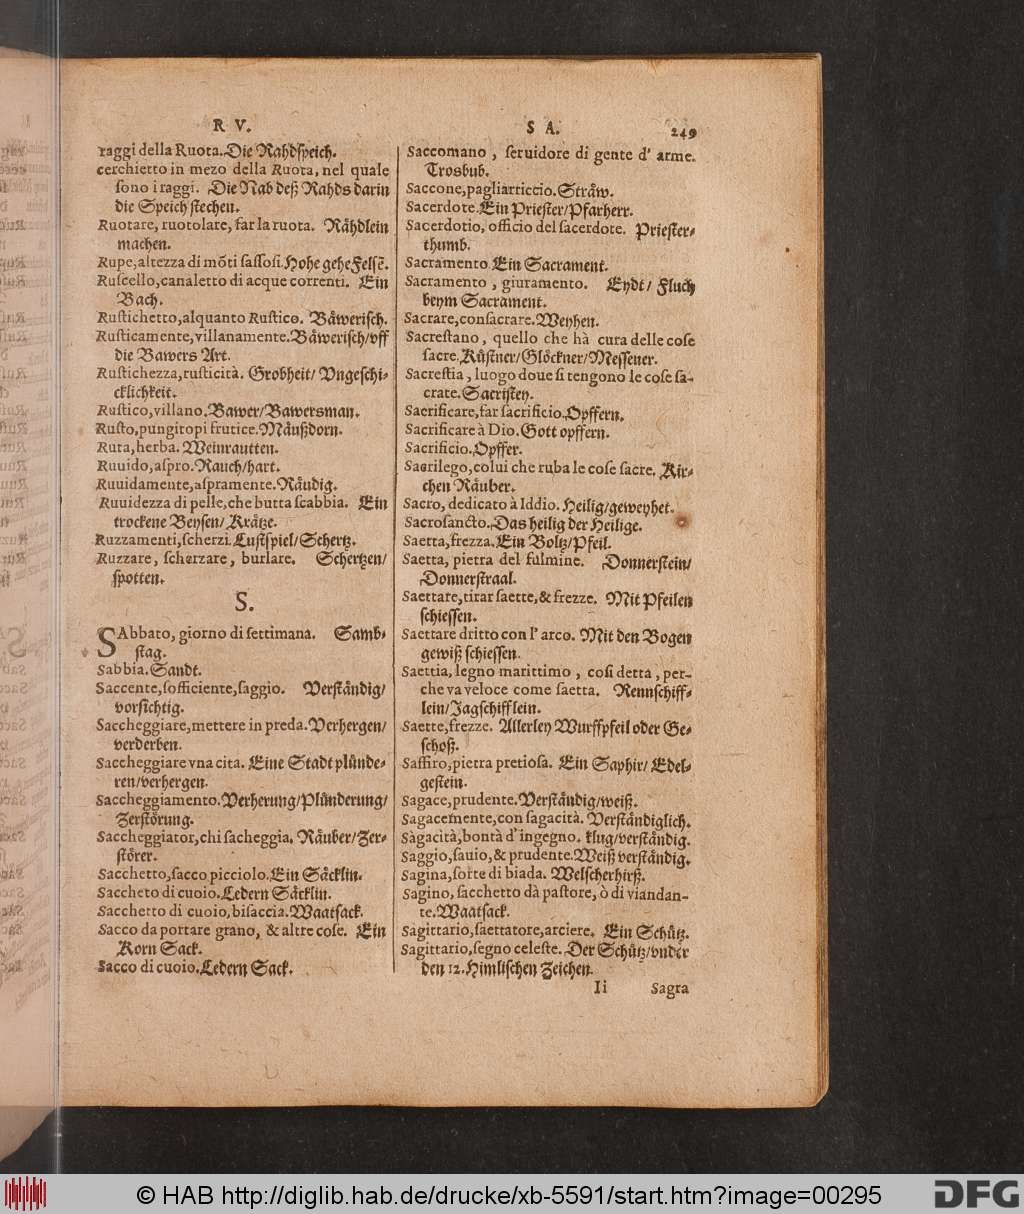 R V.
raggi della Ruota. Die Rahdspeich.
cerchietto in mezo della Ruota, nel quale
ſono i raggi. Die Nab deß Rahds darin
die Speich ſtechen.
Ruotare, ruotolare, far la ruota. Råhdlein
machen.
Rupe, altezza di mõti ſaſſoſi. Hohe gehe Felſẽ.
Ruſcello, canaletto di acque correnti. Ein
Bach.
Ruſtichetto, alquanto Ruſtico. Båweriſch.
Ruſticamente, villanamente. Båweriſch/vff
die Bawers Art.
Ruſtichezza, ruſticità. Grobheit/ Vngeſchi-
cklichkeit.
Ruſtico, villano. Bawer/Bawersman.
Ruſto, pungitopi frutice. Måußdorn.
Ruta, herba. Weinrautten.
Ruuido, aſpro. Rauch/hart.
Ruuidamente, aſpramente. Råudig.
Ruuidezza di pelle, che butta ſcabbia. Ein
trockene Beyſen/Kråtze.
Ruzzamenti, ſcherzi. Luſtſpiel/Schertz.
Ruzzare, ſcherzare, burlare. Schertzen/
ſpotten.
S.
SAbbato, giorno di ſettimana. Samb-
ſtag.
Sabbia. Sandt.
Saccente, ſofficiente, ſaggio. Verſtåndig/
vorſichtig.
Saccheggiare, mettere in preda. Verhergen/
verderben.
Saccheggiare vna cita. Eine Stadt plünde-
ren/verhergen.
Saccheggiamento. Verherung/Plünderung/
Zerſtörung.
Saccheggiator, chi ſacheggia. Råuber/Zer-
ſtörer.
Sacchetto, ſacco picciolo. Ein Såcklin.
Saccheto di cuoio. Ledern Såcklin.
Sacchetto di cuoio, biſaccia. Waatſack.
Sacco da portare grano, & altre coſe. Ein
Korn Sack.
Sacco di cuoio. Ledern Sack.
S A. 249
Saccomano, ſeruidore di gente d' arme.
Trosbub.
Saccone, pagliarticcio. Stråw.
Sacerdote. Ein Prieſter/Pfarherr.
Sacerdotio, officio del ſacerdote. Prieſter-
thumb.
Sacramento Ein Sacrament.
Sacramento, giuramento. Eydt/ Fluch
beym Sacrament.
Sacrare, conſacrare. Weyhen.
Sacreſtano, quello che hà cura delle coſe
ſacre. Küſtner/Glöckner/Meſſener.
Sacreſtia, luogo doue ſi tengono le coſe ſa-
crate. Sacriſtey.
Sacrificare, far ſacrificio. Opffern.
Sacrificare à Dio. Gott opffern.
Sacrificio. Opffer.
Sacrilego, colui che ruba le coſe ſacre. Kir-
chen Råuber.
Sacro, dedicato à Iddio. Heilig/geweyhet.
Sacroſancto. Das heilig der Heilige.
Saetta, frezza. Ein Boltz/Pfeil.
Saetta, pietra del fulmine. Donnerſtein/
Donnerſtraal.
Saettare, tirar ſaette, & frezze. Mit Pfeilen
ſchieſſen.
Saettare dritto con l' arco. Mit den Bogen
gewiß ſchieſſen.
Saettia, legno marittimo, coſi detta, per-
che va veloce come ſaetta. Rennſchiff-
lein/Jagſchifflein.
Saette, frezze. Allerley Wurffpfeil oder Ge-
ſchoß.
Saffiro, pietra pretioſa. Ein Saphir/ Edel-
geſtein.
Sagace, prudente. Verſtåndig/weiß.
Sagacemente, con ſagacità. Verſtåndiglich.
Sagacità, bontà d' ingegno. klug/verſtåndig.
Saggio, ſauio, & prudente. Weiß verſtåndig.
Sagina, ſorte di biada. Welſcherhirß.
Sagino, ſacchetto dà paſtore, ò di viandan-
te. Waatſack.
Sagittario, ſaettatore, arciere. Ein Schütz.
Sagittario, ſegno celeſte. Der Schütz/vnder
den 12. Himliſchen Zeichen.
Ii Sagra
© HAB http://diglib.hab.de/drucke/xb-5591/start.htm?image=00295
DFG